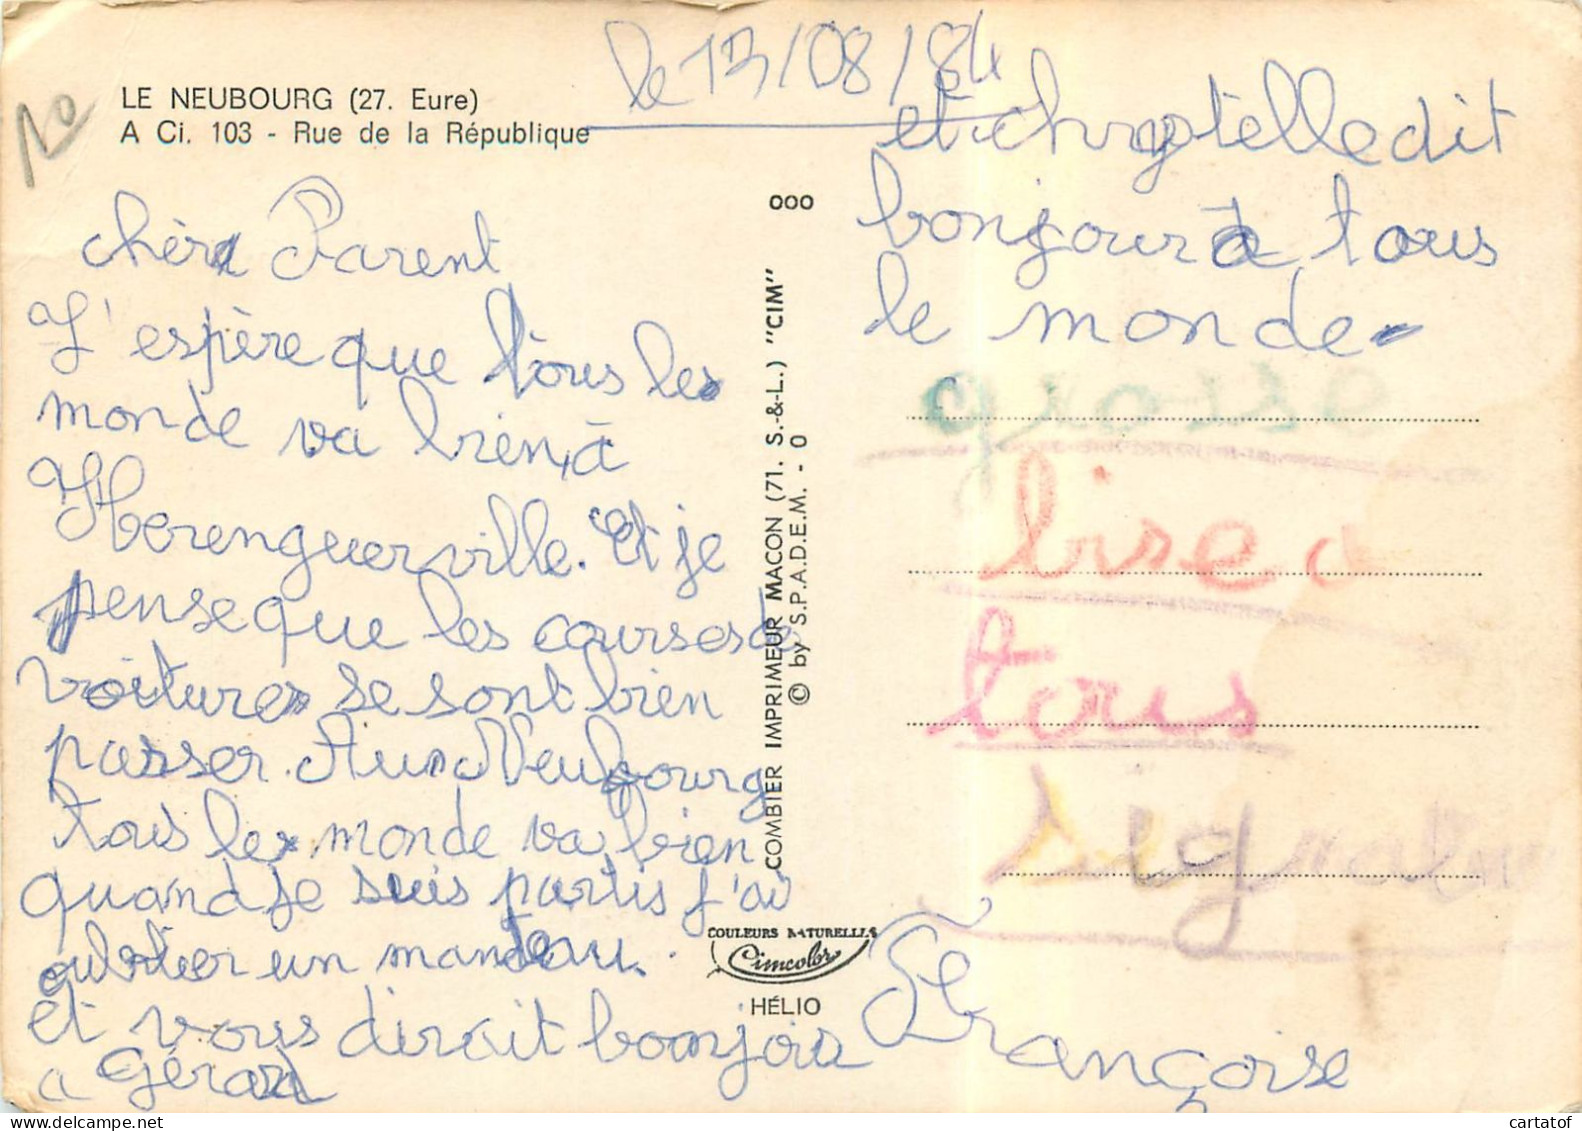 le 13/08/84
LE NEUBOURG (27. Eure)
A Ci. 103 - Rue de la République
chèr Parent
J'espère que tous les
monde va bien, à
Herenguerville. Et je
pense que les courses de
voitures se sont bien
passer. Au Neubourg
tous les monde va bien
quand je suis partis j'ai
oublier un manteau.
et vous dirait bonjour
a Gérard
et chrystelle dit
bonjour à tous
le monde
bise a
tous
signature
Françoise
ooo
COMBIER IMPRIMEUR MACON (71. S.-&-L.) "CIM"
© by S.P.A.D.E.M. - 0
COULEURS NATURELLES
Cimcolor
HÉLIO
cartatof